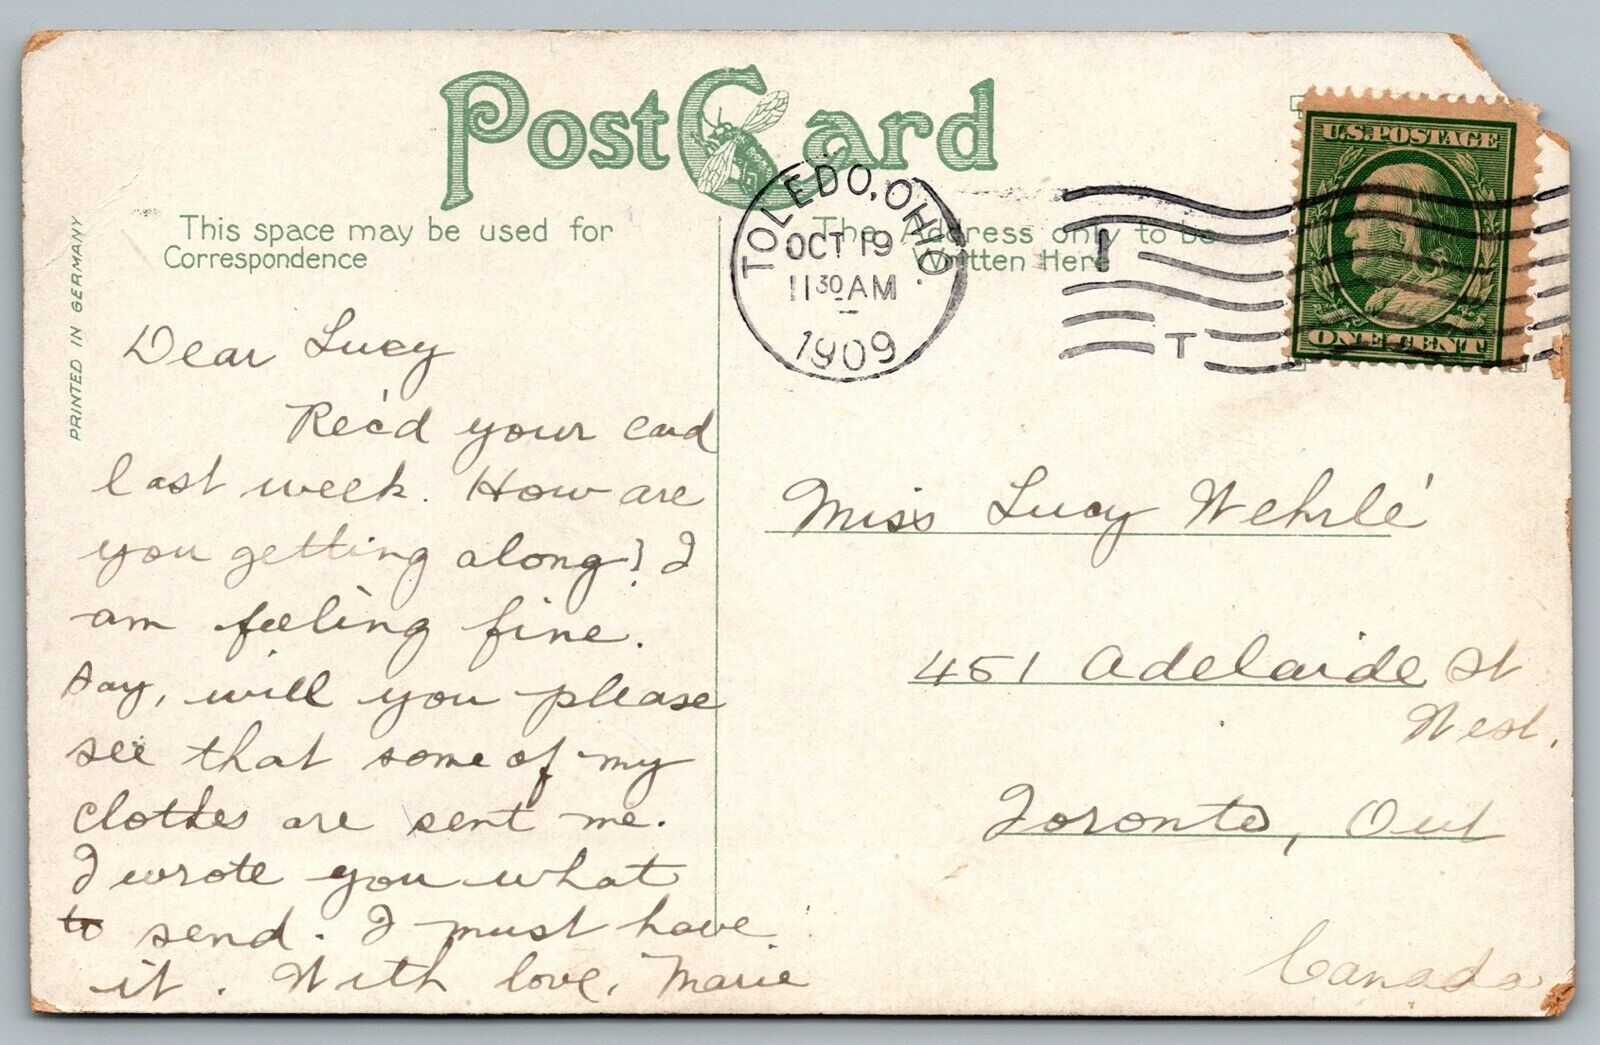 Post Card
This space may be used for
Correspondence
The Address only to be
Written Here
PRINTED IN GERMANY
TOLEDO, OHIO.
OCT 19
11 30 AM
1909
1
T
U.S. POSTAGE
ONE CENT
Dear Lucy
Rec'd your card
last week. How are
you getting along? I
am feeling fine.
Say, will you please
see that some of my
clothes are sent me.
I wrote you what
to send. I must have
it. With love, Marie
Miss Lucy Wehrlé
451 Adelaide St
West.
Toronto, Ont
Canada